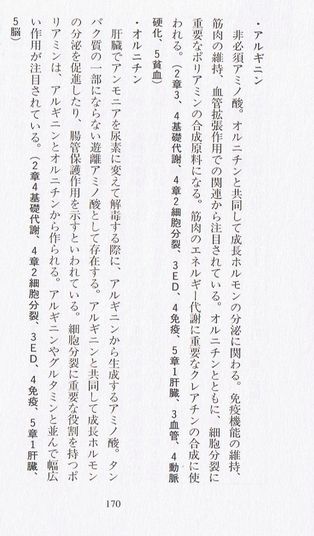 ・アルギニン
非必須アミノ酸。オルニチンと共同して成長ホルモンの分泌に関わる。免疫機能の維持、
筋肉の維持、血管拡張作用での関連から注目されている。オルニチンとともに、細胞分裂に
重要なポリアミンの合成原料になる。筋肉のエネルギー代謝に重要なクレアチンの合成に使
われる。(2章3、4基礎代謝、4章2細胞分裂、3ED、4免疫、5章1肝臓、3血管、4動脈
硬化、5貧血)
・オルニチン
肝臓でアンモニアを尿素に変えて解毒する際に、アルギニンから生成するアミノ酸。タン
パク質の一部にならない遊離アミノ酸として存在する。アルギニンと共同して成長ホルモン
の分泌を促進したり、腸管保護作用を示すといわれている。細胞分裂に重要な役割を持つポ
リアミンは、アルギニンとオルニチンから作られる。アルギニンやグルタミンと並んで幅広
い作用が注目されている。(2章4基礎代謝、4章2細胞分裂、3ED、4免疫、5章1肝臓、
5脳)
170